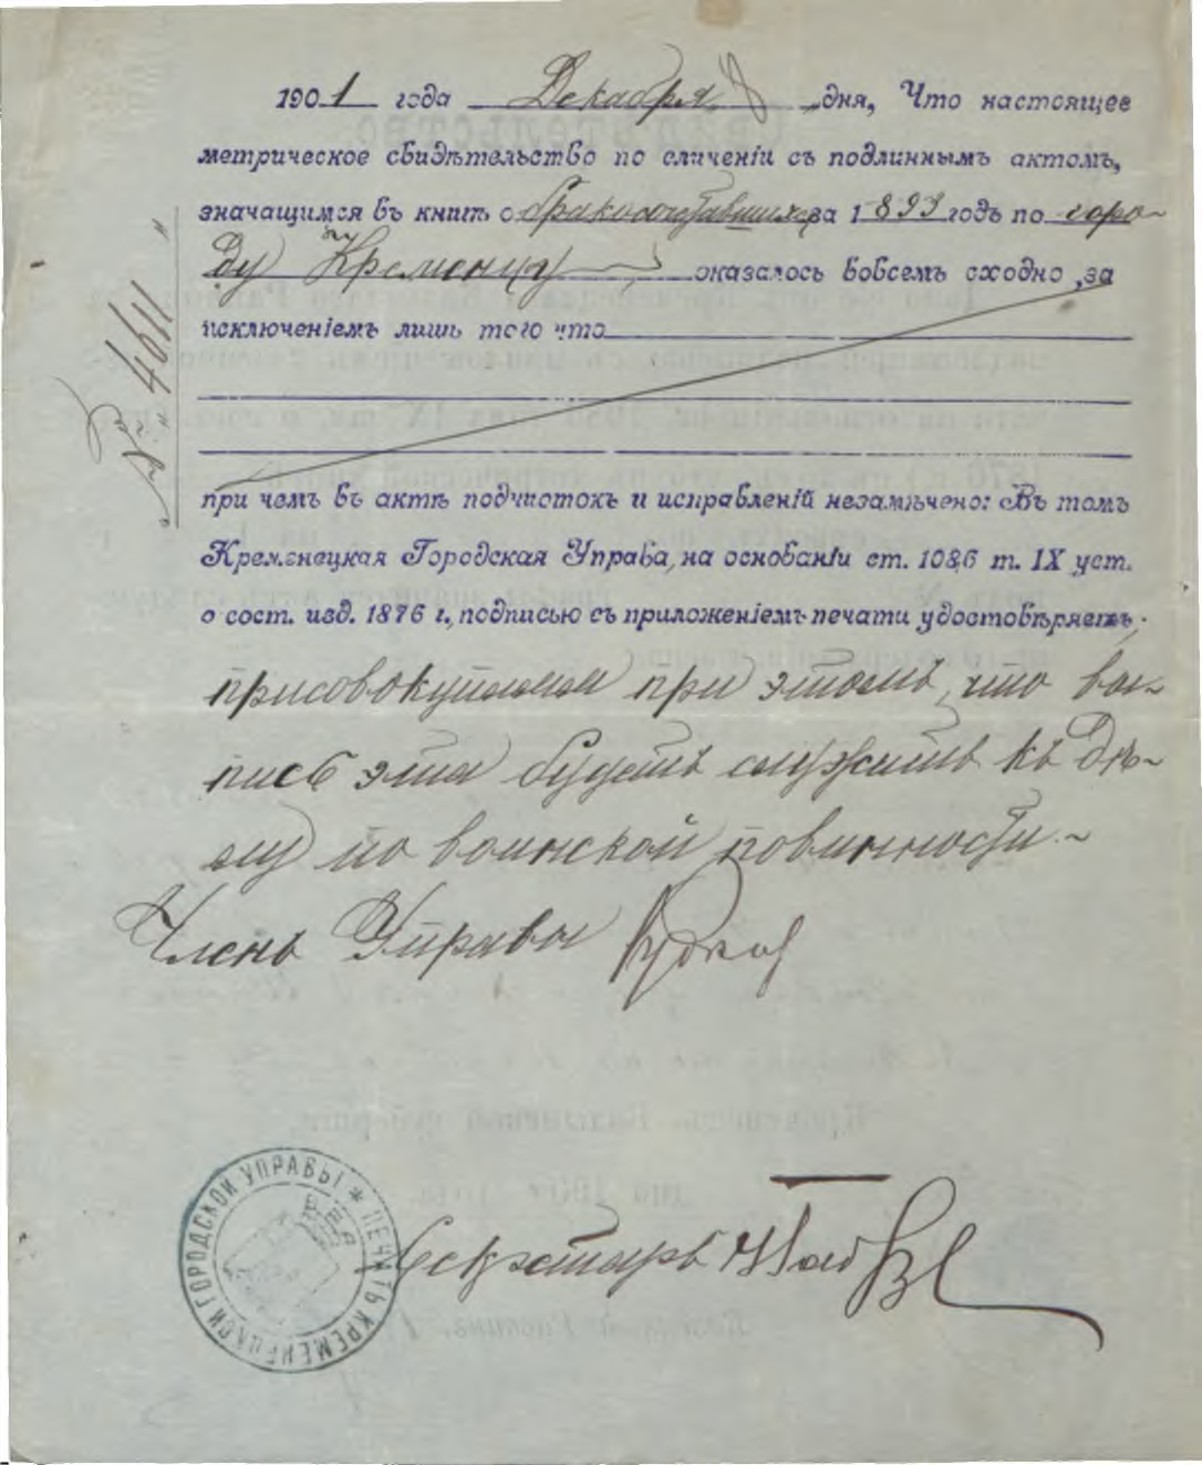 1901 года Декабря дня, Что настоящее
метрическое свидѣтельство по сличеніи съ подлиннымъ актомъ,
значащимся въ книгѣ о бракосочетавшихся за 1893 годъ по горо-
ду Кременцу оказалось вовсемъ сходно, за
исключеніемъ лишь того что
при чемъ въ актѣ подчистокъ и исправленій незамѣчено: Въ томъ
Кременецкая Городская Управа, на основаніи ст. 1086 т. IX уст.
о сост. изд. 1876 г., подписью съ приложеніемъ печати удостовѣряетъ,
присовокупляя при этомъ, что вы-
пись эта будетъ служить къ дѣ-
лу по воинской повинности.
Членъ Управы
Секретарь
ПЕЧАТЬ КРЕМЕНЕЦКОЙ ГОРОДСКОЙ УПРАВЫ *
№ 4611